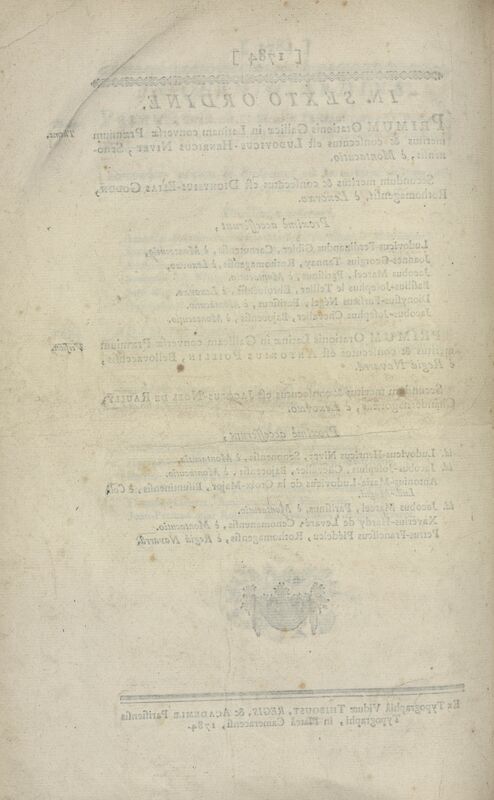 [ 1784 ]
IN SEXTO ORDINE.
PRIMUM Orationis Gallicæ in Latinam conversæ Præmium
meritus & consecutus est LUDOVICUS-HENRICUS NIVER, Seno-
nensis, è Montacutio.
Secundum meritus & consecutus est DIONYSIUS-ELIAS
Rothomagensis, è Lexoveo.
Proximè accesserunt,
Ludovicus-Ferdinandus Gislier, Carnutensis, è Montacutio.
Joannes-Georgius Tannay, Rothomagensis, è Lexoveo.
Jacobus Marcel, Parisinus, è Montacutio.
Basilius-Josephus le Tellier, è Lexoveo.
Dionysius-Furcæus Négel, Parisinus, è Montacutio.
Jacobus-Josephus Chevalier, Bajocensis, è Montacutio.
PRIMUM Orationis Latinæ in Gallicam conversæ Præmium
meritus & consecutus est ANTONIUS POILLIN, Bellovacensis,
è Regiâ Navarrâ.
Secundum meritus & consecutus est JACOBUS-NOEL DE RAULLY,
è Lexoveo.
Proximè accesserunt,
id. Ludovicus-Henricus Niver, Senonensis, è Montacutio.
id. Jacobus-Josephus Chevalier, Bajocensis, è Montacutio.
Antonius-Maria-Ludovicus de la Croix-Major, è Col.
Lud. Magni.
id. Jacobus Marcel, Parisinus, è Montacutio.
Xaverius-Hardy de Levaré, Cenomanensis, è Montacutio.
Petrus-Franciscus Pidefeu, Rothomagensis, è Regiâ Navarrâ.
Ex Typographiâ Viduæ THIBOUST, REGIS, & ACADEMIÆ Parisiensis
Typographi, in Plateâ Cameracensi, 1784.